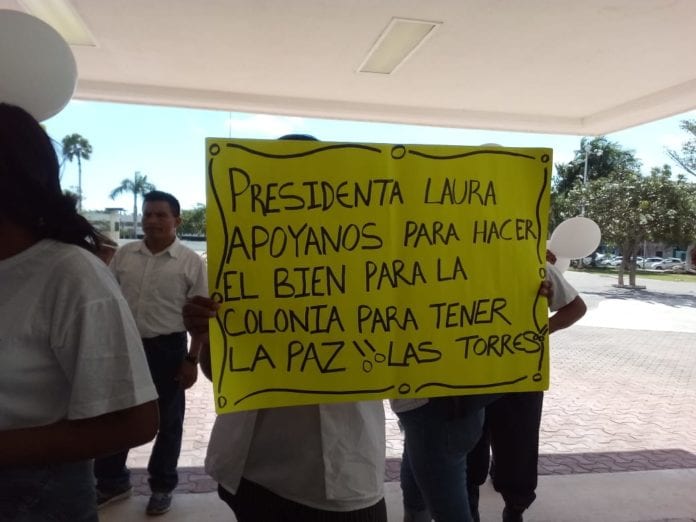 PRESIDENTA LAURA
APOYANOS PARA HACER
EL BIEN PARA LA
COLONIA PARA TENER
LA PAZ !! LAS TORRES